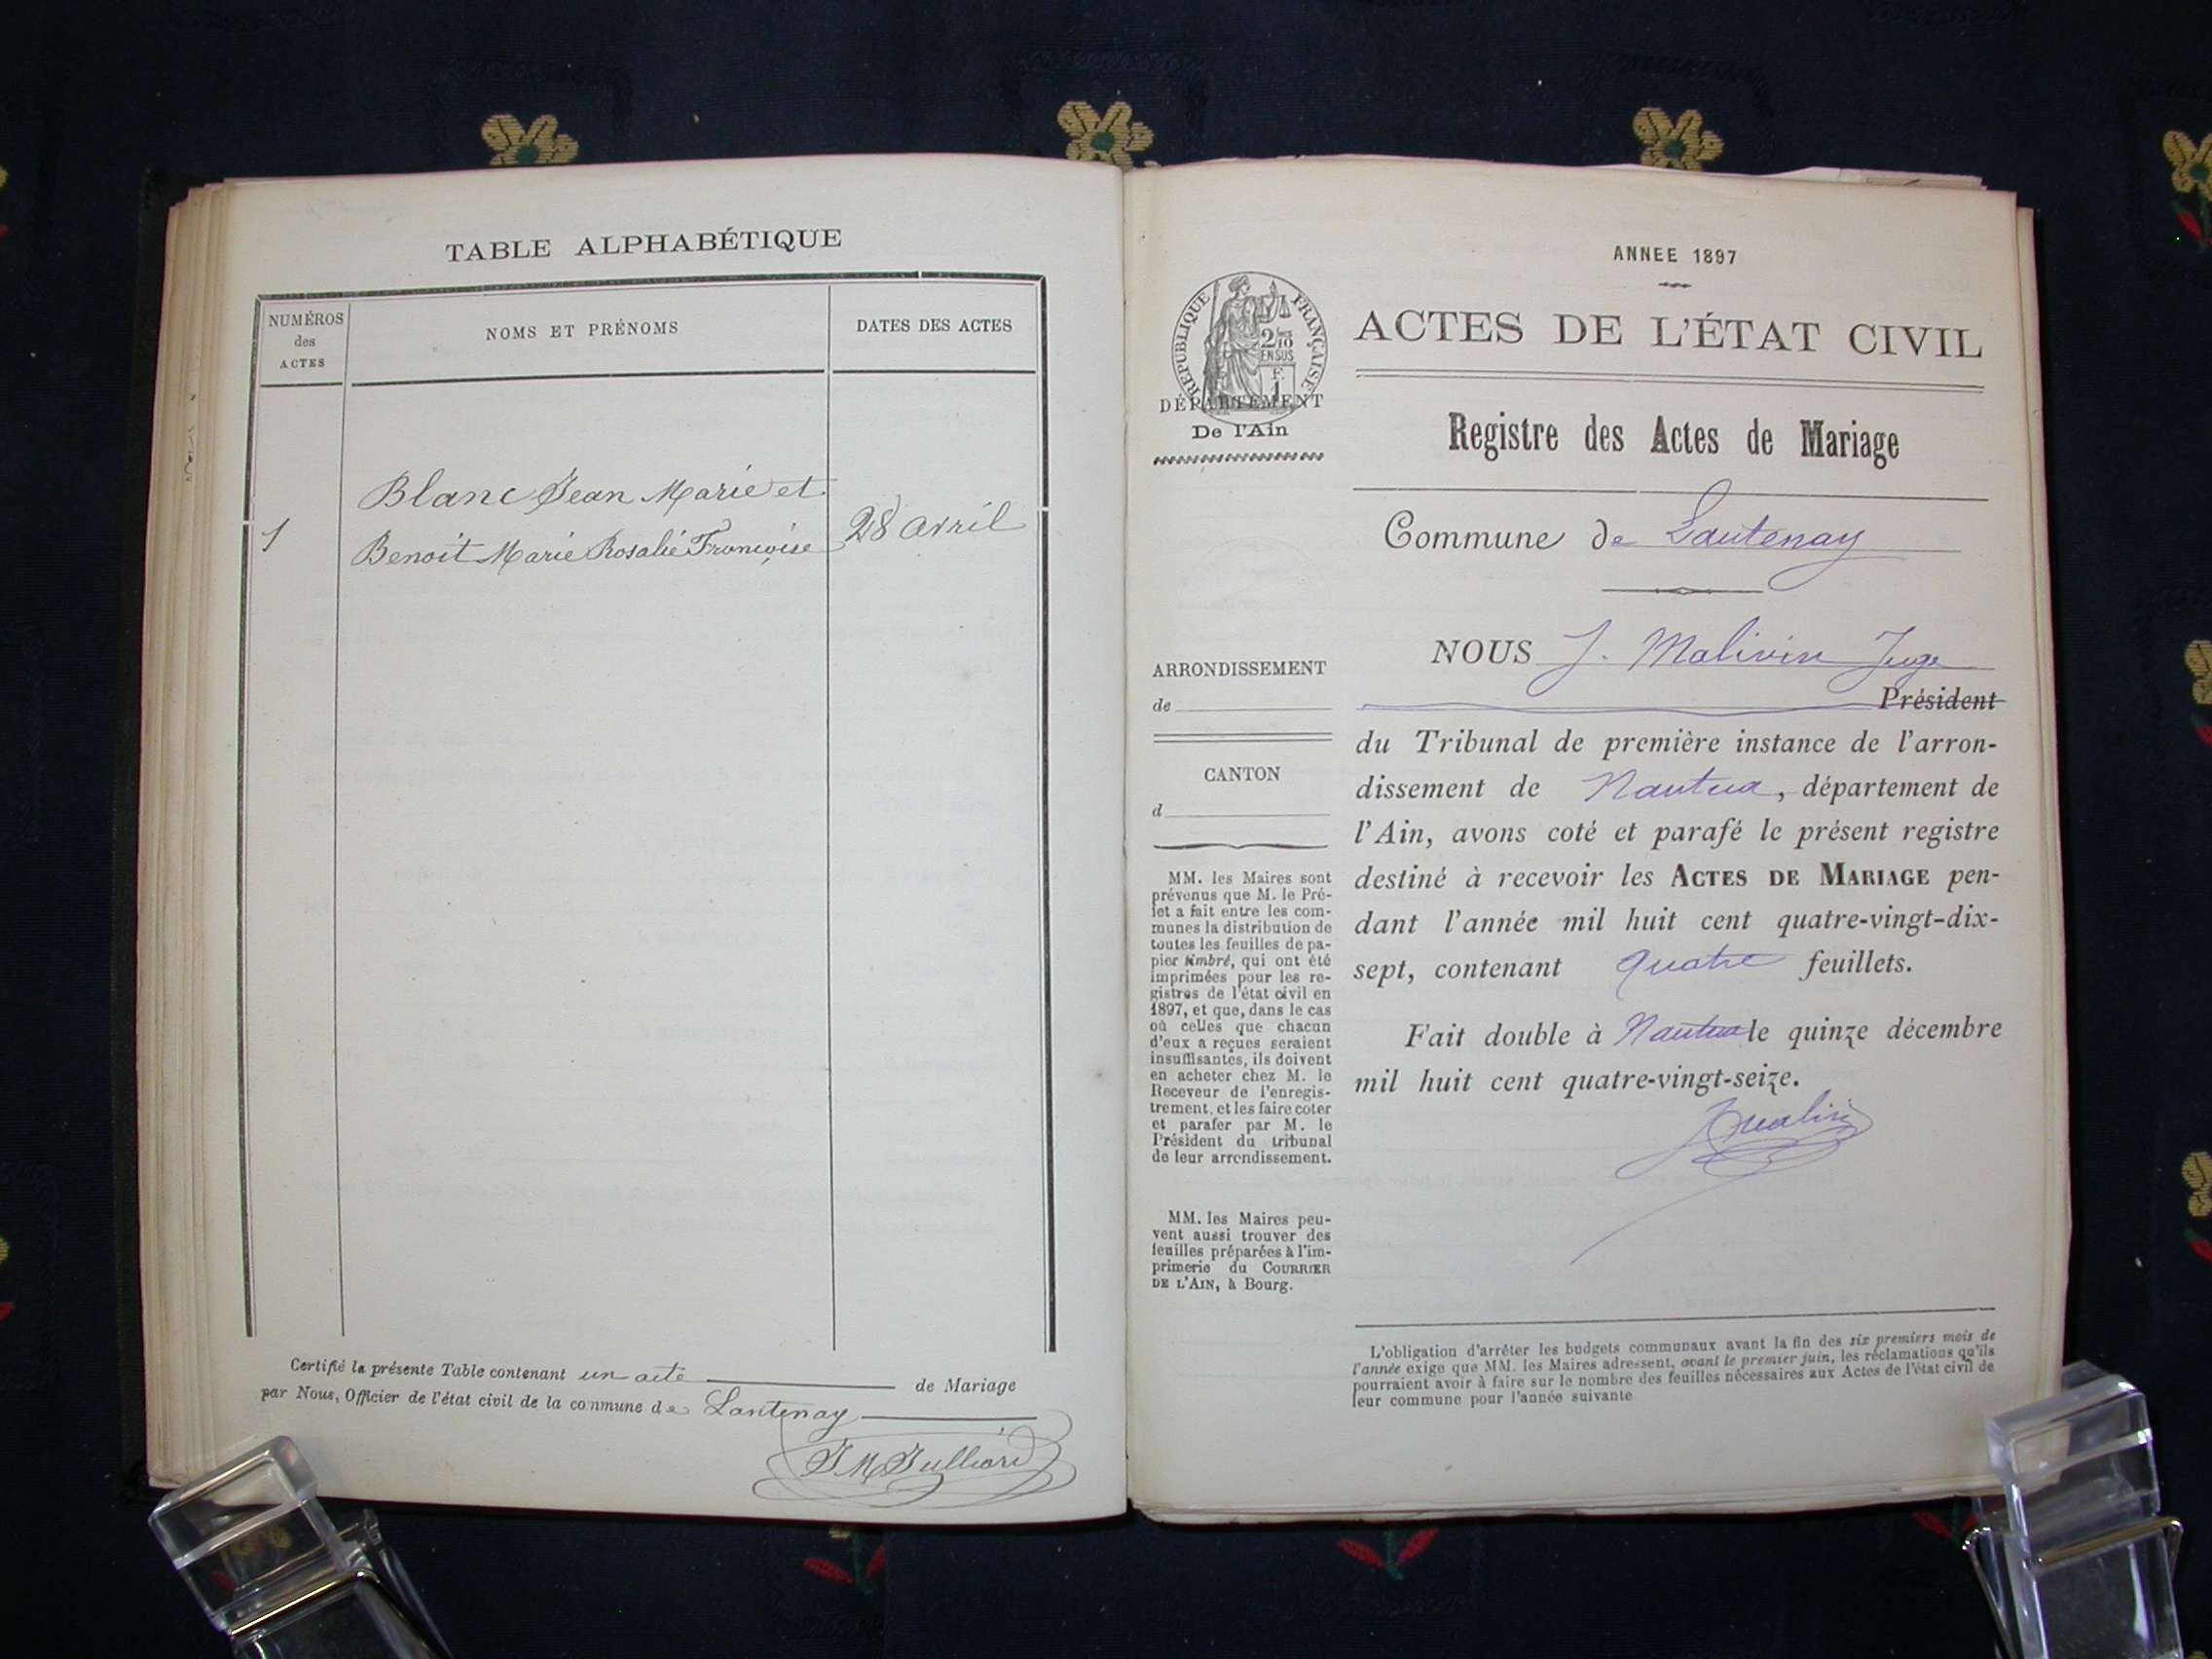 TABLE ALPHABÉTIQUE
NUMÉROS
des
ACTES
NOMS ET PRÉNOMS
DATES DES ACTES
Blanc Jean Marie et
1
Benoit Marie Rosalie Françoise
28 avril
Certifié la présente Table contenant un acte de Mariage
par Nous, Officier de l'état civil de la commune de Lantenay
JM Julliard
ANNEE 1897
RÉPUBLIQUE FRANÇAISE
2/10
EN SUS
F.
1
DÉPARTEMENT
De l'Ain
ARRONDISSEMENT
de
CANTON
d
MM. les Maires sont
prévenus que M. le Pré-
fet a fait entre les com-
munes la distribution de
toutes les feuilles de pa-
pier timbré, qui ont été
imprimées pour les re-
gistres de l'état civil en
1897, et que, dans le cas
où celles que chacun
d'eux a reçues seraient
insuffisantes, ils doivent
en acheter chez M. le
Receveur de l'enregis-
trement, et les faire coter
et parafer par M. le
Président du tribunal
de leur arrondissement.
MM. les Maires peu-
vent aussi trouver des
feuilles préparées à l'im-
primerie du COURRIER
DE L'AIN, à Bourg.
ACTES DE L'ÉTAT CIVIL
Registre des Actes de Mariage
Commune de Lantenay
NOUS J. Malivin Juge
Président
du Tribunal de première instance de l'arron-
dissement de Nantua, département de
l'Ain, avons coté et parafé le présent registre
destiné à recevoir les ACTES DE MARIAGE pen-
dant l'année mil huit cent quatre-vingt-dix-
sept, contenant quatre feuillets.
Fait double à Nantua le quinze décembre
mil huit cent quatre-vingt-seize.
L'obligation d'arrêter les budgets communaux avant la fin des six premiers mois de
l'année exige que MM. les Maires adressent, avant le premier juin, les réclamations qu'ils
pourraient avoir à faire sur le nombre des feuilles nécessaires aux Actes de l'état civil de
leur commune pour l'année suivante